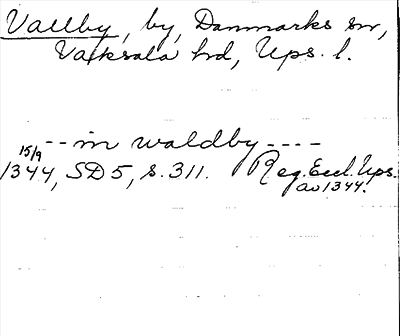 Vallby, by, Danmarks sn,
Vaksala hd, Ups. l.
--in waldby----
15/9
1344, SD 5, s. 311. Reg. Eccl. Ups.
av 1344.